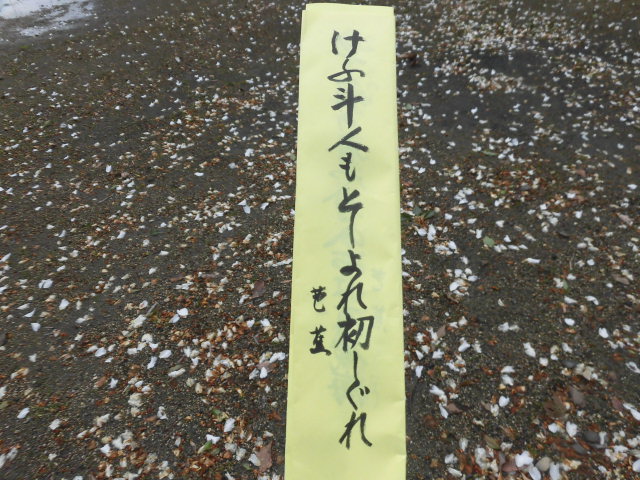 けふ斗人もとしよれ初しぐれ
芭蕉